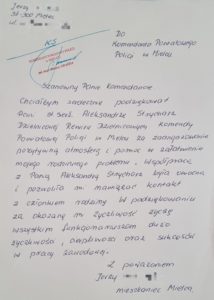 Jerzy
39-300 Mielec
ul.
Do
Komendanta Powiatowego
Policji w Mielcu
Szanowny Panie Komendancie
Chciałbym serdecznie podziękować
Pani st. sierż. Aleksandrze Strycharz
Dzielnicowej Rewiru Dzielnicowych Komendy
Powiatowej Policji w Mielcu za zaangażowanie
pozytywną atmosferę i pomoc w załatwieniu
mojego rodzinnego problemu. Współpraca
z Panią Aleksandrą Strycharz była owocna
i pozwoliła mi nawiązać kontakt
z członkiem rodziny. W podziękowaniu
za okazaną mi życzliwość życzę
wszystkim funkcjonariuszom dużo
życzliwości, cierpliwości oraz sukcesów
w pracy zawodowej.
Z poważaniem
Jerzy
mieszkaniec Mielca